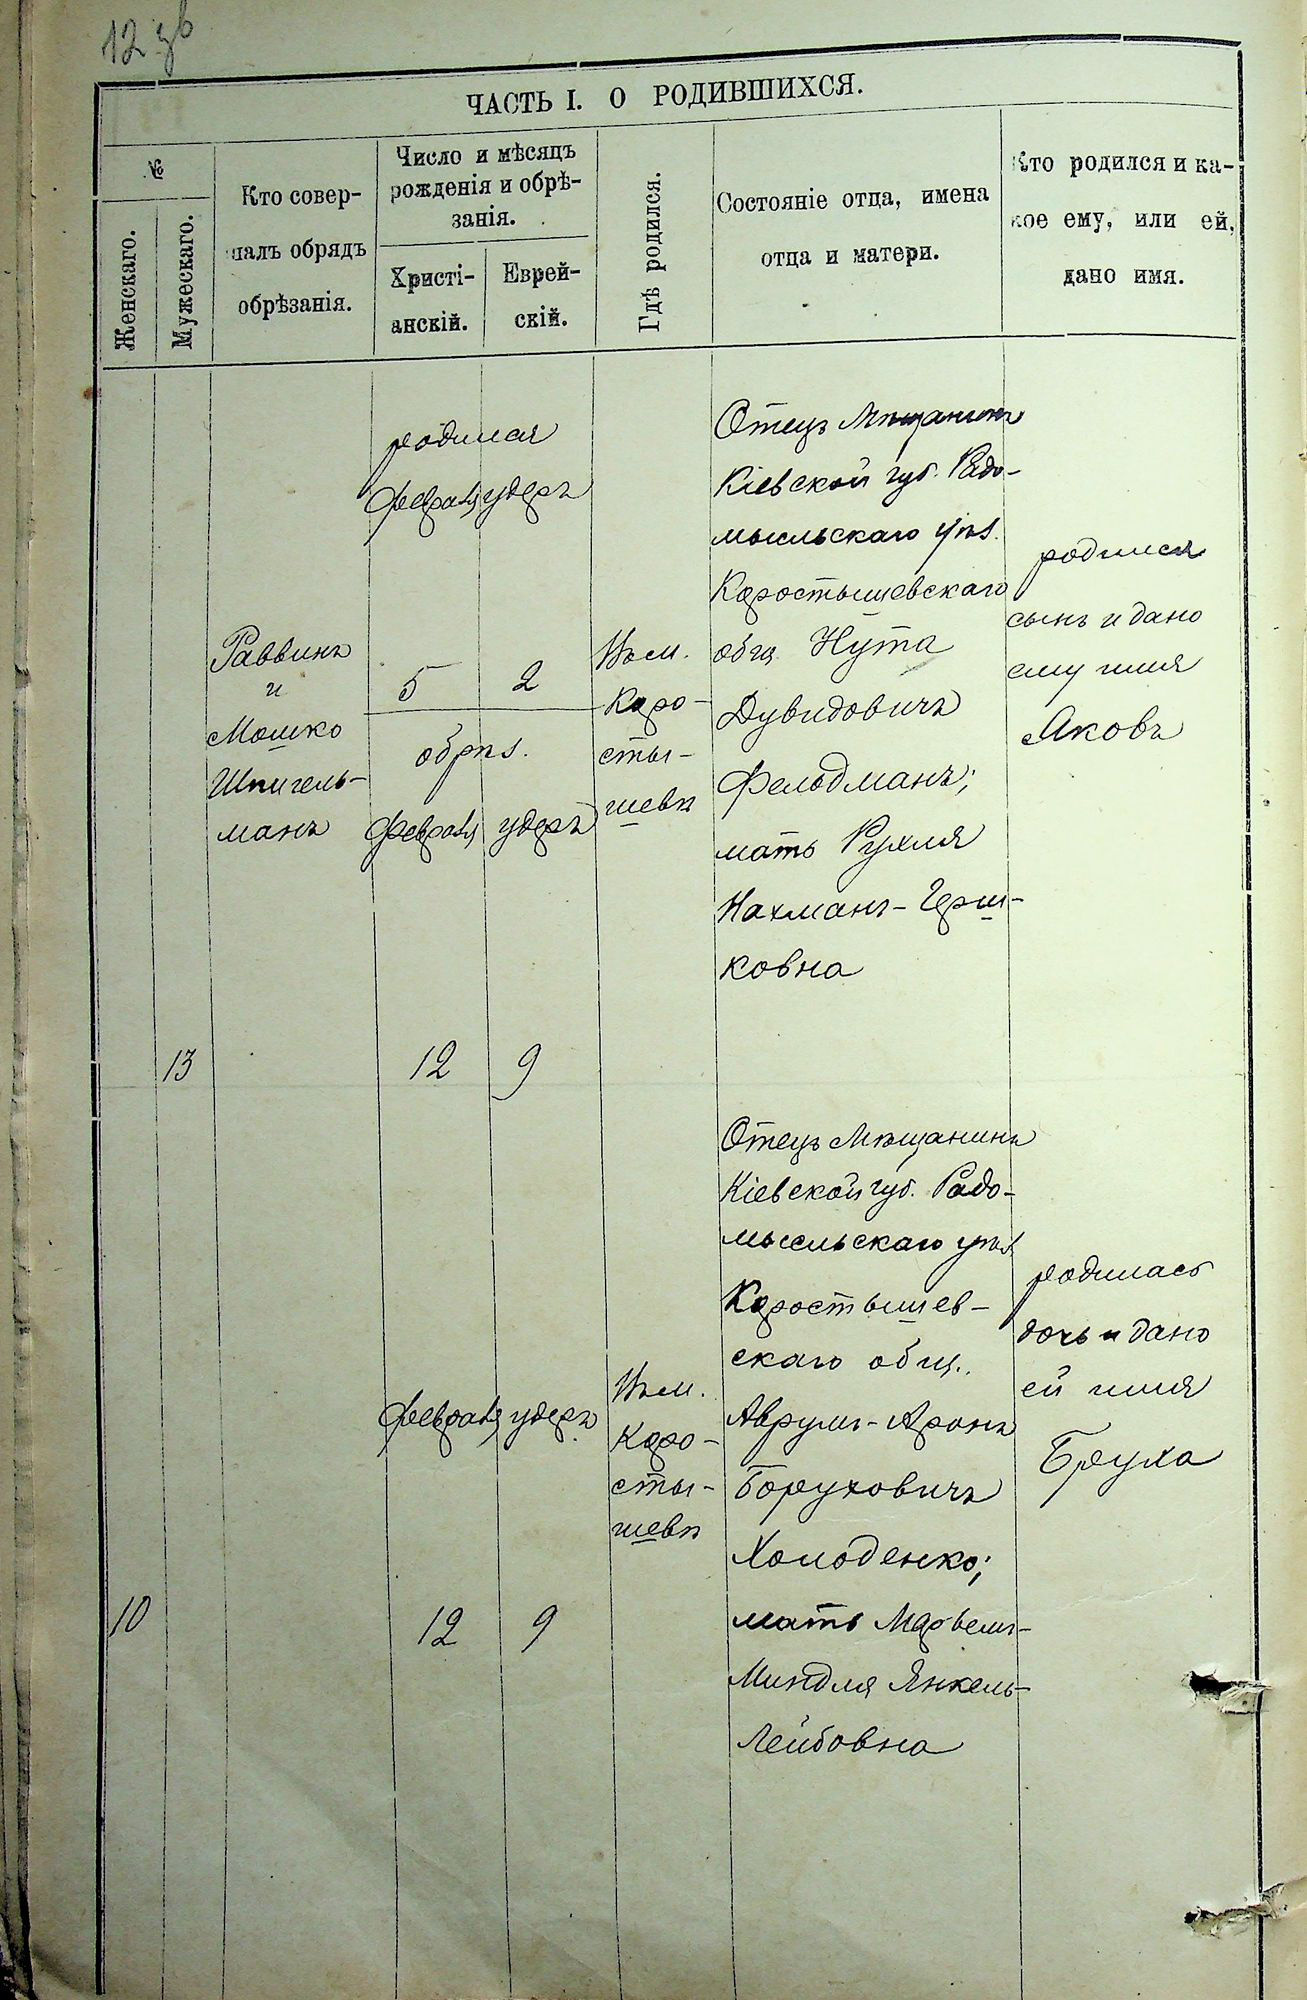 12 зв
ЧАСТЬ I. О РОДИВШИХСЯ.
№
Женскаго.
Мужескаго.
Кто совер-
шалъ обрядъ
обрѣзанія.
Число и мѣсяцъ
рожденія и обрѣ-
занія.
Христі-
анскій.
Еврей-
скій.
Гдѣ родился.
Состояніе отца, имена
отца и матери.
Кто родился и ка-
кое ему, или ей,
дано имя.
13
Раввинъ
и
Мошко
Шпигель-
манъ
родился
февраля удеръ
5 2
обрѣз.
февраля удеръ
12 9
Въ м.
Коро-
сты-
шевѣ
Отецъ Мѣщанинъ
Кіевской губ. Радо-
мысльскаго уѣз.
Коростышевскаго
общ. Нута
Дувидовичъ
Фельдманъ;
мать Рухля
Нахманъ-Герш-
ковна
родился
сынъ и дано
ему имя
Яковъ
10
февраля удеръ
12 9
Въ м.
Коро-
сты-
шевѣ
Отецъ Мѣщанинъ
Кіевской губ. Радо-
мысльскаго уѣз
Коростышев-
скаго общ.
Аврумъ-Аронъ
Боруховичъ
Холоденко;
мать
Миндля Янкель-
Лейбовна
родилась
дочь и дано
ей имя
Бруха